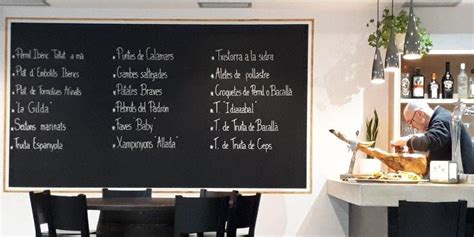 Pernil Ibèric Tallat a mà
Plat d'Embotits Ibèrics
Plat de Formatges Afinats
"La Gilda"
Seitons marinats
Truita Espanyola
Puntes de Calamars
Gambes saltejades
Patates Braves
Pebrots del Padrón
Faves Baby
Xampinyons "Allada"
Txistorra a la sidra
Aletes de pollastre
Croquetes de Pernil o Bacallà
T. "Iduazabal"
T. de Truita de Bacallà
T. de Truita de Ceps